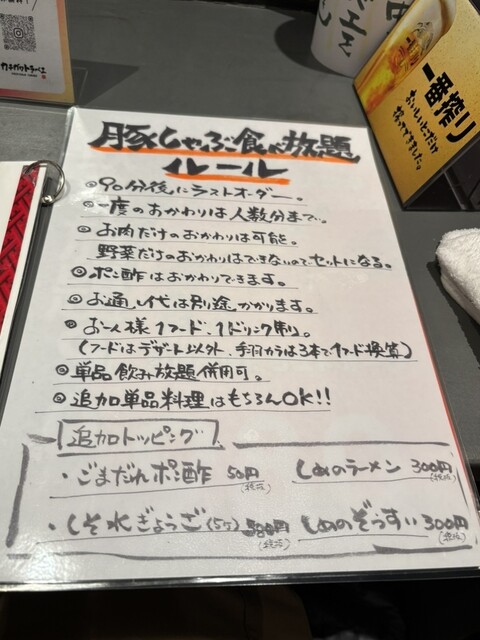 カキガワトラベエ
一番搾り
おいしいとこだけ
搾ってできました。
豚しゃぶ食べ放題
ルール
◎90分後にラストオーダー。
◎一度のおかわりは人数分まで。
◎お肉だけのおかわりは可能。
野菜だけのおかわりはできないのでセットになる。
◎ポン酢はおかわりできます。
◎お通し代は別途かかります。
◎お一人様1フード、1ドリンク制。
(フードはデザート以外、手羽カラは3本で1フード換算)
◎単品飲み放題併用可。
◎追加単品料理はもちろんOK!!
追加トッピング
・ごまだれポン酢 50円(税抜) しめのラーメン 300円(税抜)
・しそ水ぎょうざ(5ケ) 300円(税抜) しめのぞうすい 300円(税抜)